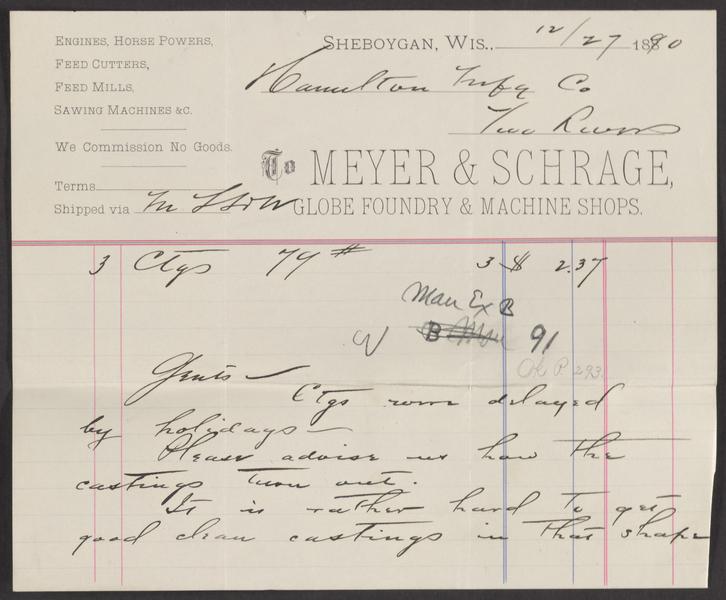 Engines, Horse Powers,
Feed Cutters,
Feed Mills,
Sawing Machines &c.
We Commission No Goods.
Terms
Shipped via M LS&W
Sheboygan, Wis., 12/27 1890
Hamilton Mfg Co
Two Rivers
To MEYER & SCHRAGE,
GLOBE FOUNDRY & MACHINE SHOPS.
3 Ctgs 79 # 3 $ 2.37
Man Ex B
B 91
OK P. 293.
Gents
Ctgs were delayed
by holidays
Please advise us how the
castings turn out.
It is rather hard to get
good clean castings in that shape